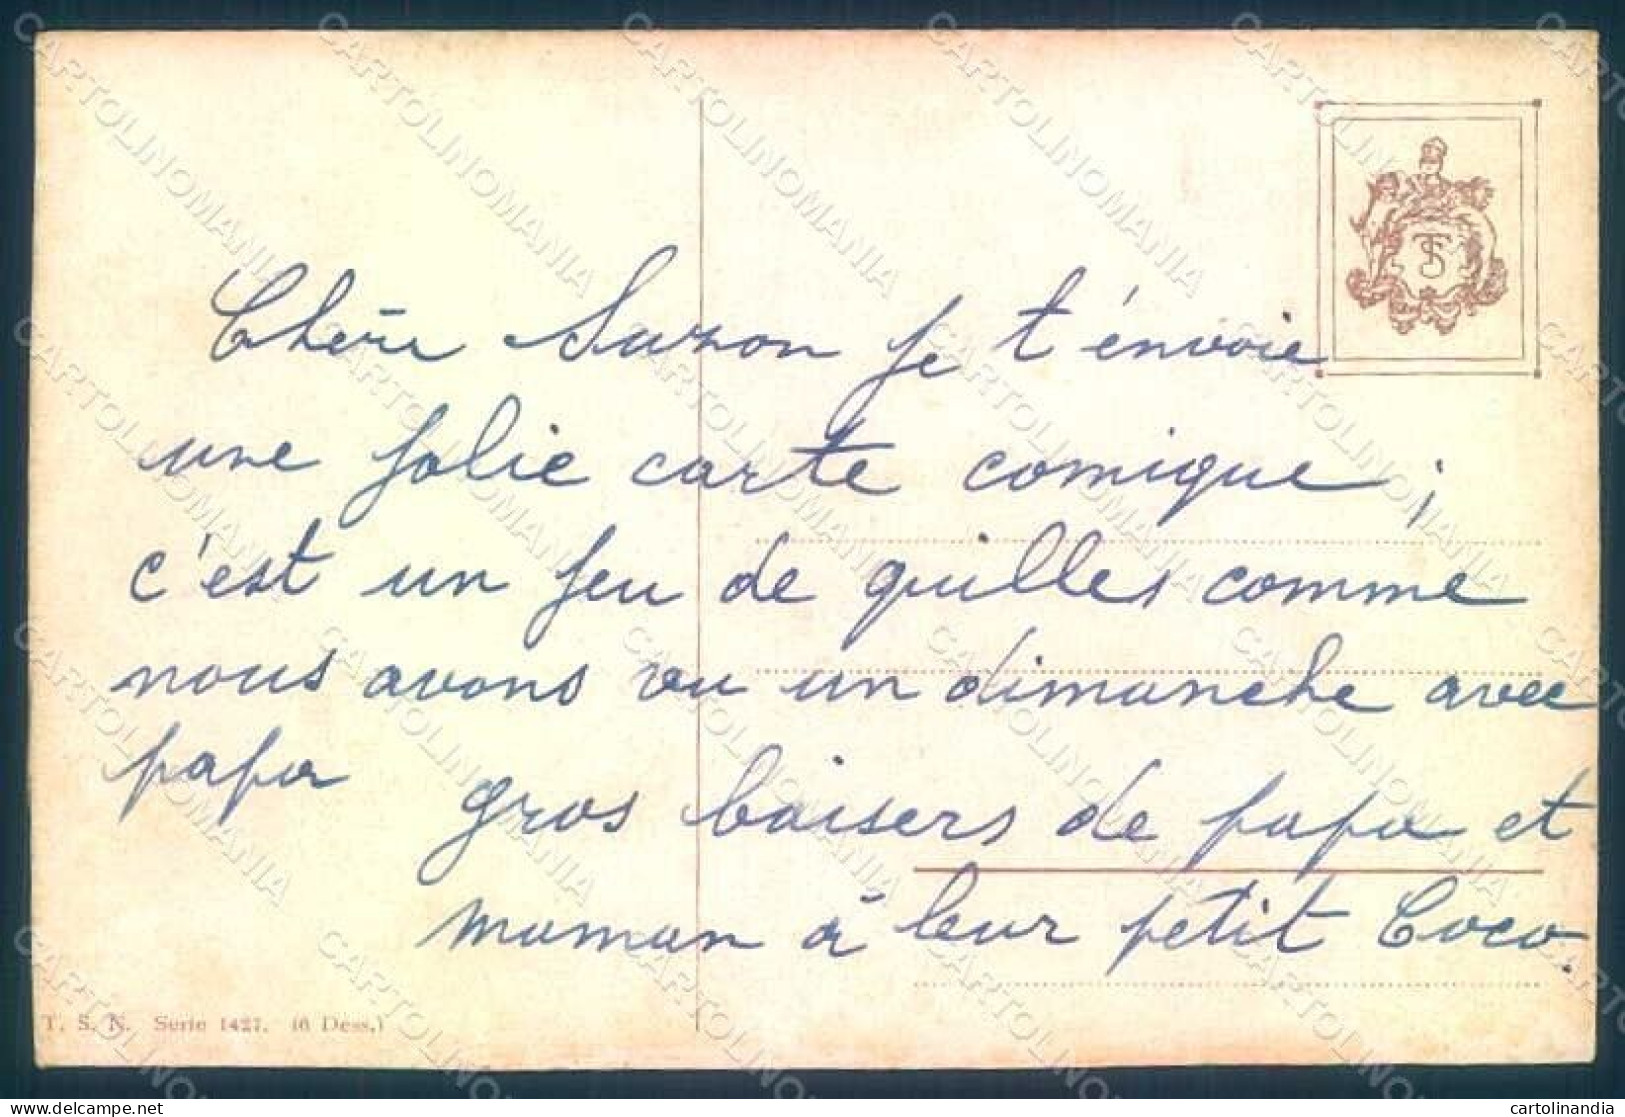 Chère Suzon je t'énvoie
une jolie carte comique ;
c'est un jeu de quilles comme
nous avons vu un dimanche avec
papa
gros baisers de papa et
maman à leur petit Coco.
T. S. N. Serie 1427. (6 Dess.)
TS
CARTOLINOMANIA
delcampe.net
cartolinandia